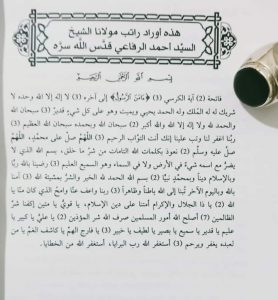 هذه أوراد راتب مولانا الشيخ
السيّد احمد الرفاعي قدّس الله سرّه
بسم الله الرحمن الرحيم
فاتحة (2) آية الكرسي (3) ﴿ءَامَنَ ٱلرَّسُولُ﴾ إلى آخره (3) لا إله إلا الله وحده لا
شريك له له المُلك وله الحمد يحيي ويميت وهو على كل شيء قدير (3) سبحان الله
والحمد لله ولا إله إلا الله والله أكبر (2) سبحان الله وبحمده سبحان الله العظيم (3)
ربنا اغفر لنا وتب علينا إنك أنت التواب الرحيم (3) اللّهُمَّ صلّ على محمّد، اللّهُمَّ
صلّ عليه وسلّم (2) نعوذ بكلمات الله التامات من شرّ ما خلق، بسم الله الذي لا
يضرّ مع اسمه شيء في الأرض ولا في السماء وهو السميع العليم (3) رضينا بالله ربًّا
وبالإسلام دينًا وبمحمّد نبيًّا (2) بسم الله الحمد لله الخير والشرّ بمشيئة الله (3) آمنا
بالله وباليوم الآخر تُبنا إلى الله باطنًا وظاهراً (3) ربنا واعف عنّا وامحُ الذي كان منّا يا
الله (2) يا ذا الجلال والإكرام أمتنا على دين الإسلام، يا قويّ يا متين إكفنا شرّ
الظالمين (7) أصلح الله أمور المسلمين صرف الله شر المؤذين (2) يا عليّ يا كبير يا
عليم يا قدير يا سميع يا بصير يا لطيف يا خبير (3) يا فارج الهمّ يا كاشف الغمّ يا من
لعبده يغفر ويرحم (3) أستغفر الله رب البرايا، أستغفر الله من الخطايا.